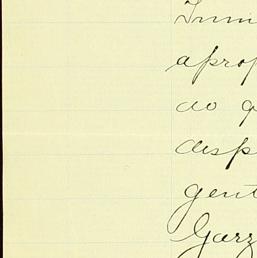 aprop
do q
desp
gent
Garz